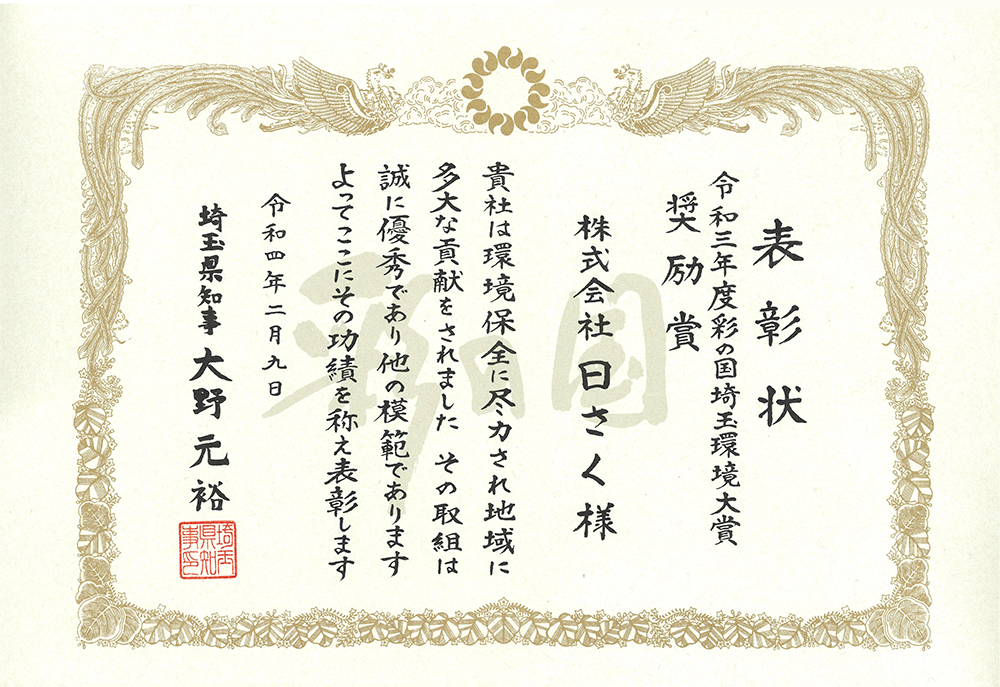 表彰状
令和三年度彩の国埼玉環境大賞
奨励賞
株式会社日さく様
貴社は環境保全に尽力され地域に
多大な貢献をされました その取組は
誠に優秀であり他の模範であります
よってここにその功績を称え表彰します
令和四年二月九日
埼玉県知事 大野元裕
埼玉
県知
事印
彩の国